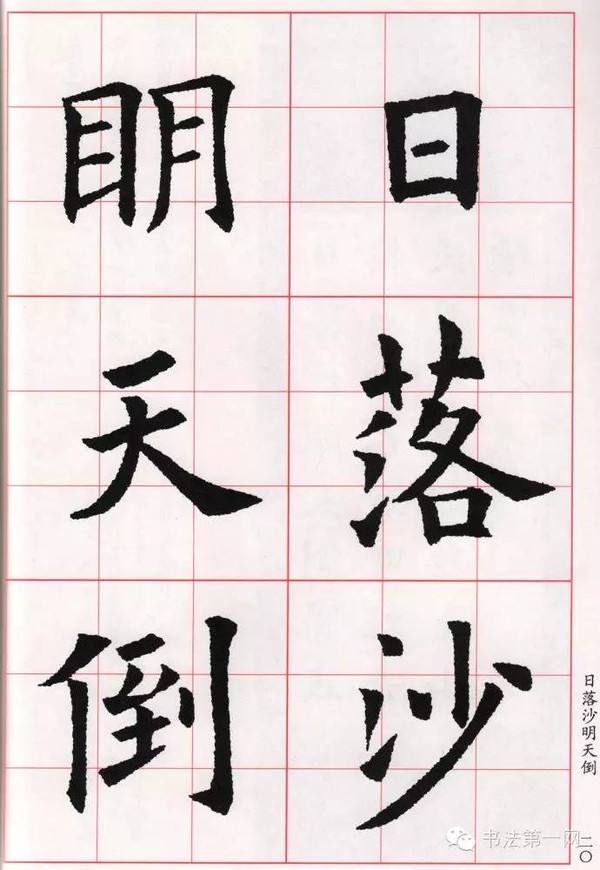 日落沙
明天倒
日落沙明天倒
二〇
书法第一网